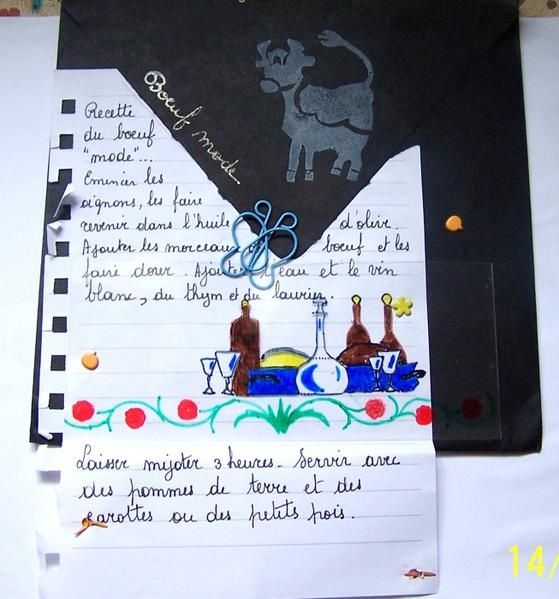 Boeuf mode
Recette
du boeuf
"mode"...
Emincer les
oignons, les faire
revenir dans l'huile d'olive.
Ajouter les morceaux boeuf et les
faire dorer. Ajouter eau et le vin
blanc, du thym et du laurier.
Laisser mijoter 3 heures. Servir avec
des pommes de terre et des
carottes ou des petits pois.
14/